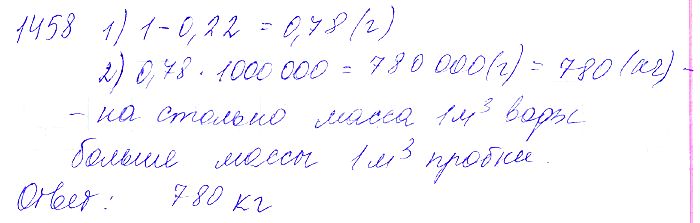 1458 1) 1 - 0,22 = 0,78 (г)
2) 0,78 · 1000 000 = 780 000 (г) = 780 (кг) -
- на столько масса 1 м³ воды
больше массы 1 м³ пробки.
Ответ: 780 кг